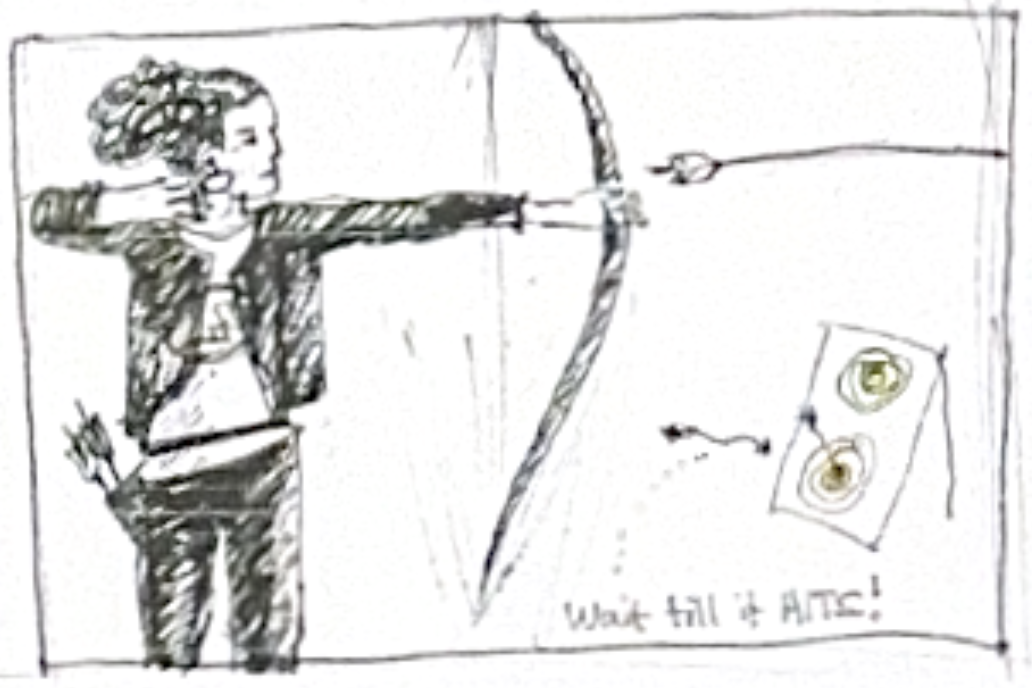 Wait till it HITS!